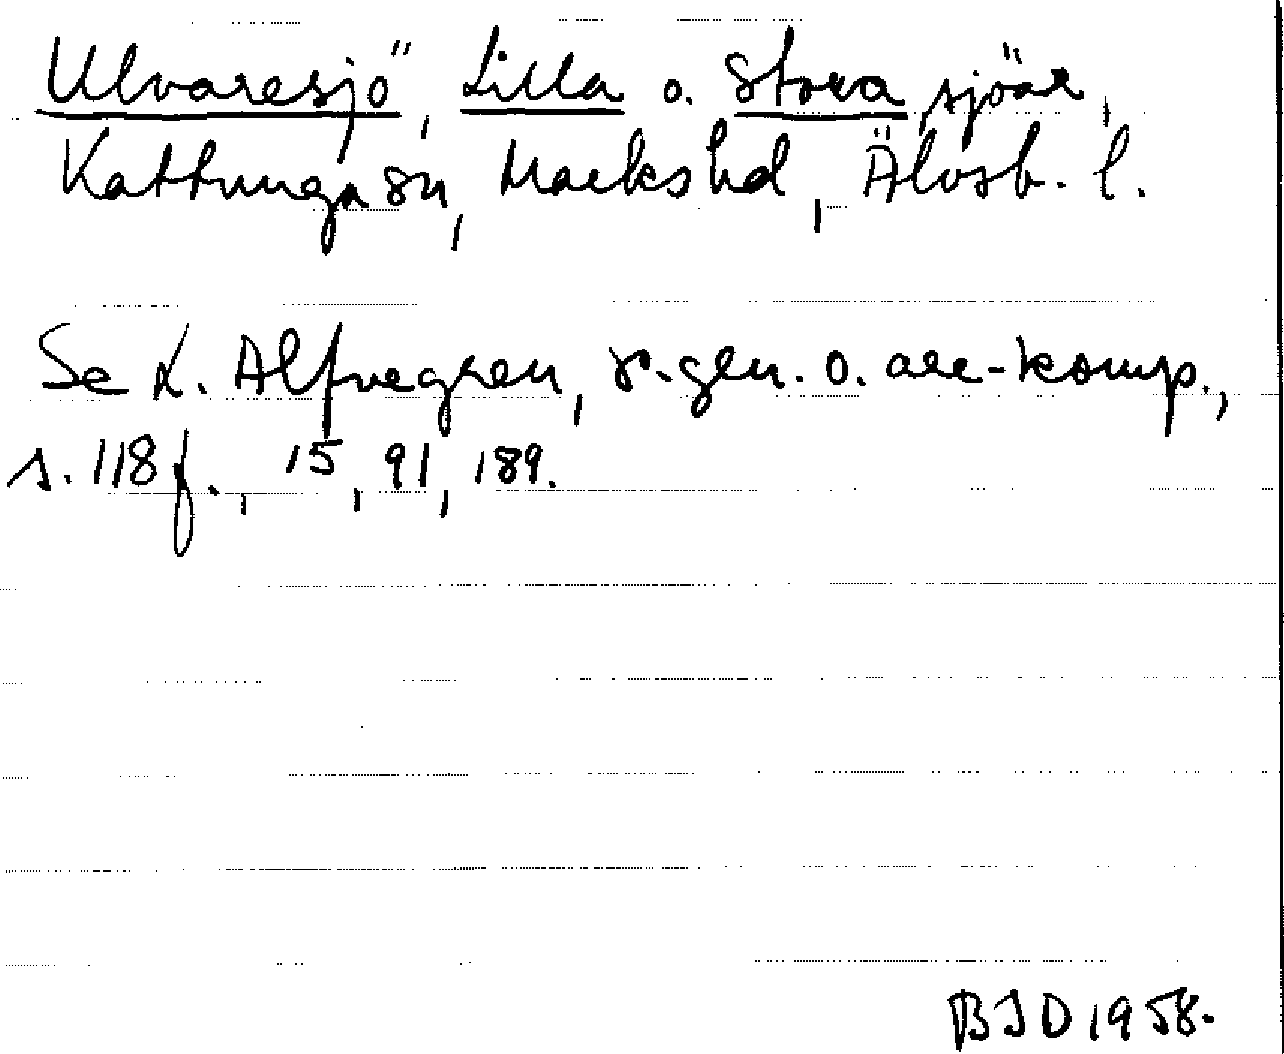 Ulvaresjö, Lilla o. Stora, sjöar,
Kattunga sn, Marks hd, Älvsb. l.
Se L. Alfvegren, r-gen. o. are-komp.,
s. 118 f., 15, 91, 189.
BJD 1958.